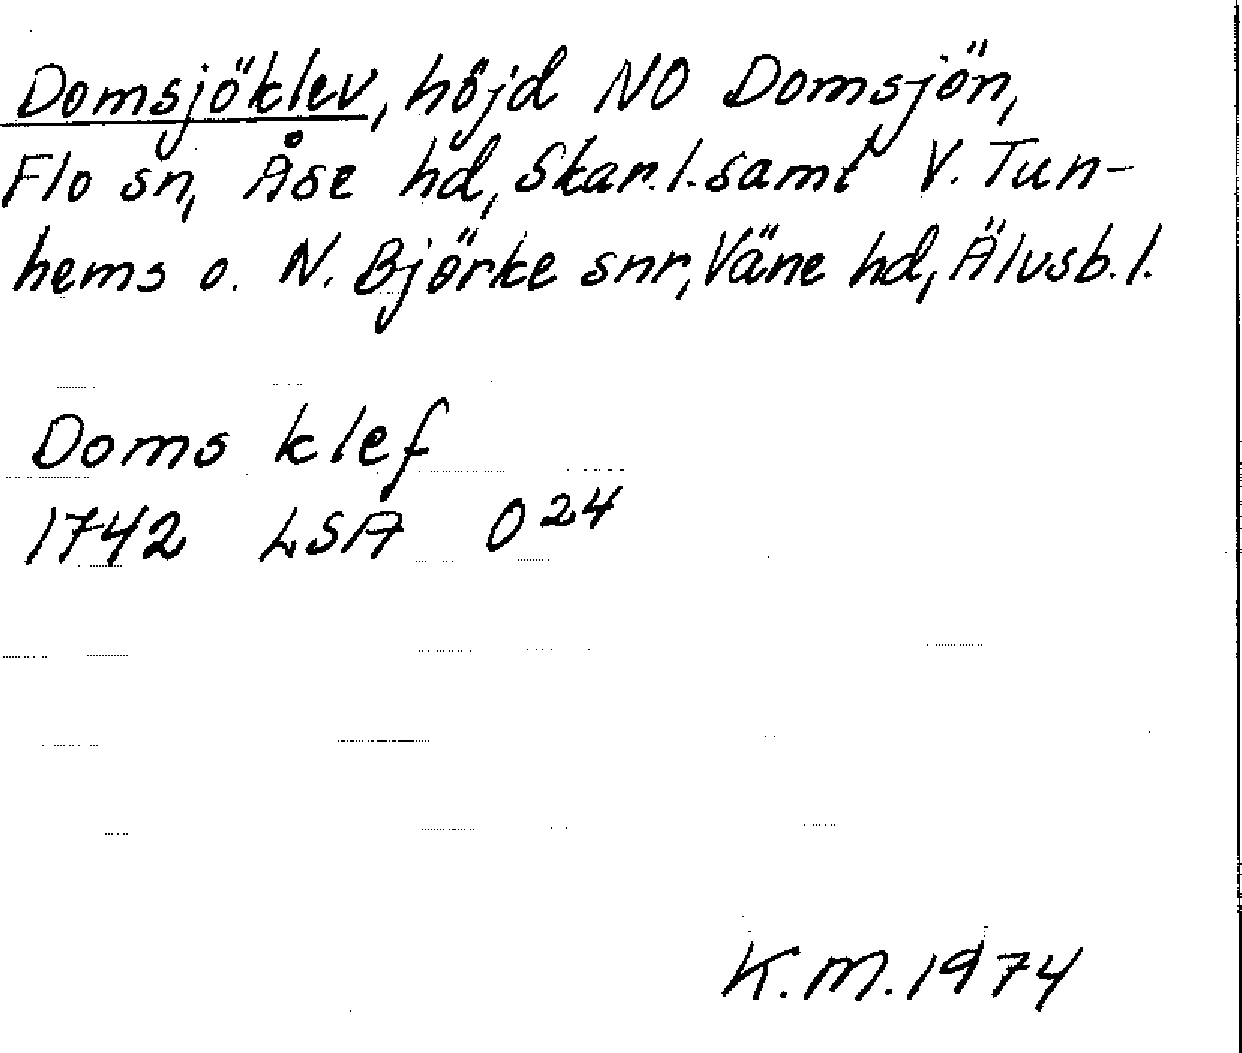 Domsjöklev, höjd NO Domsjön,
Flo sn, Åse hd, Skar.l. samt V. Tun-
hems o. N. Björke snr, Väne hd, Älvsb.l.
Doms klef
1742 LSA O24
K.M. 1974